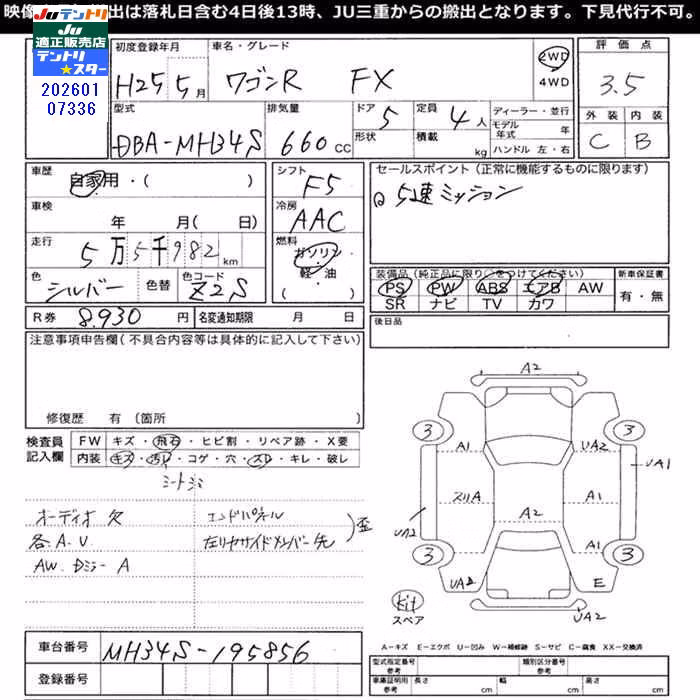 映像 出は落札日含む4日後13時、JU三重からの搬出となります。下見代行不可。
Juテントリ
JU適正販売店
テントリ★スター
202601
07336
初度登録年月 車名・グレード 2WD 評価点
H25 5月 ワゴンR FX 4WD 3.5
型式 排気量 ドア 5 定員 4人 ディーラー・並行 外装 内装
DBA-MH34S 660cc 形状 積載 kg モデル年式 年 C B
ハンドル 左・右
車歴 シフト セールスポイント(正常に機能するものに限ります)
自家用・( ) F5 5速ミッション
車検 年 月( 日) 冷房 AAC
走行 5万5千982km 燃料 ガソリン
軽・油
( )
色 シルバー 色替 色コード Z2S
装備品(純正品に限り○をつけてください) 新車保証書
PS PW ABS エアB AW 有・無
SR ナビ TV カワ
R券 8.930円 名変通知期限 月 日 後日品
注意事項申告欄(不具合内容等は具体的に記入して下さい)
修復歴 有(箇所 )
検査員 FW キズ・飛石・ヒビ割・リペア跡・X要
記入欄 内装 キズ・汚レ・コゲ・穴・スレ・キレ・破レ
シートシミ
オーディオ欠 エンドパネル
各.A.U 左リヤサイドメンバー先 )歪
A2
3 3
A1 UA2 UA1
スリA A1
A2
UA2
A1
3 3
UA2 E
kit UA2
スペア
A-キズ E-エクボ U-凹み W-補修跡 S-サビ C-腐食 XX-交換済
車台番号 MH34S-195856
登録番号
型式指定番号 参考 類別区分番号 参考
車庫証明用 参考 長さ cm 幅 cm 高さ cm